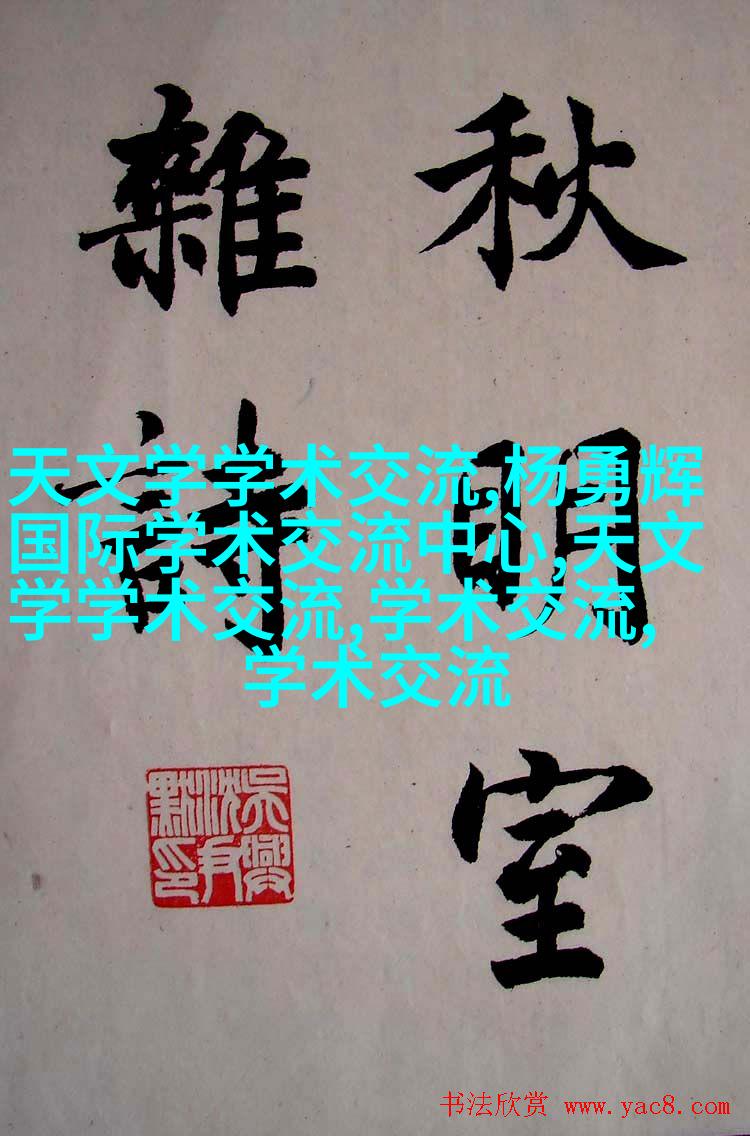 秋明室
雜詩
天文学学术交流,杨勇辉
国际学术交流中心,天文
学学术交流,学术交流,
学术交流
吳興
沈尹
默印
书法欣赏 www.yac8.com